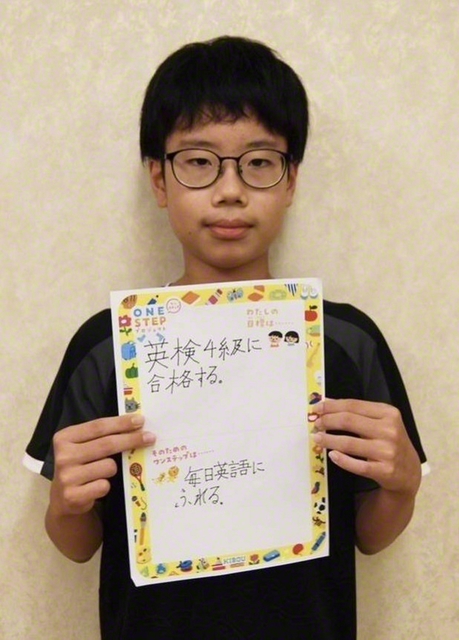 ONE
STEP
プロジェクト
わたしの
目標は……
英検4級に
合格する。
そのための
ワンステップは……
毎日英語に
ふれる。
KIBOU